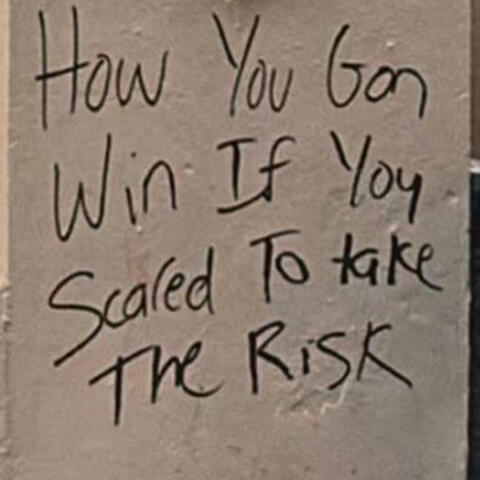 How You Gon
Win If You
Scared To take
The Risk